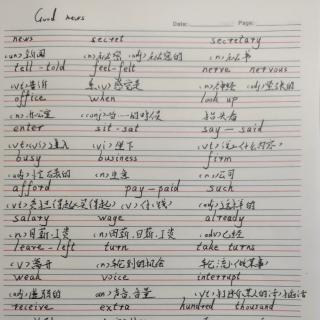 Good news
Date: Page:
news secret secretary
(n) 新闻 (n) 秘密 (adj) 秘密的 (n) 秘书
tell - told feel - felt nerve nervous
(vt) 告诉 感觉是 (n) 神经 (adj) 紧张的
office when look up
(n) 办公室 (conj) 当…的时候 抬头看
enter sit - sat say - said
(vt)(vi) 进入 (vi) 坐下
busy business firm
(adj) 忙碌的 (n) 生意 (n) 公司
afford pay - paid such
(v) 付钱
salary wage already
(n) 月薪,工资 (n) 周薪,日薪,工资 (adv) 已经
leave - left turn take turns
(v) 离开 (n) 轮到的机会 轮流(做某事)
weak voice interrupt
(adj) 虚弱的 (n) 声音,音量
receive extra hundred thousand